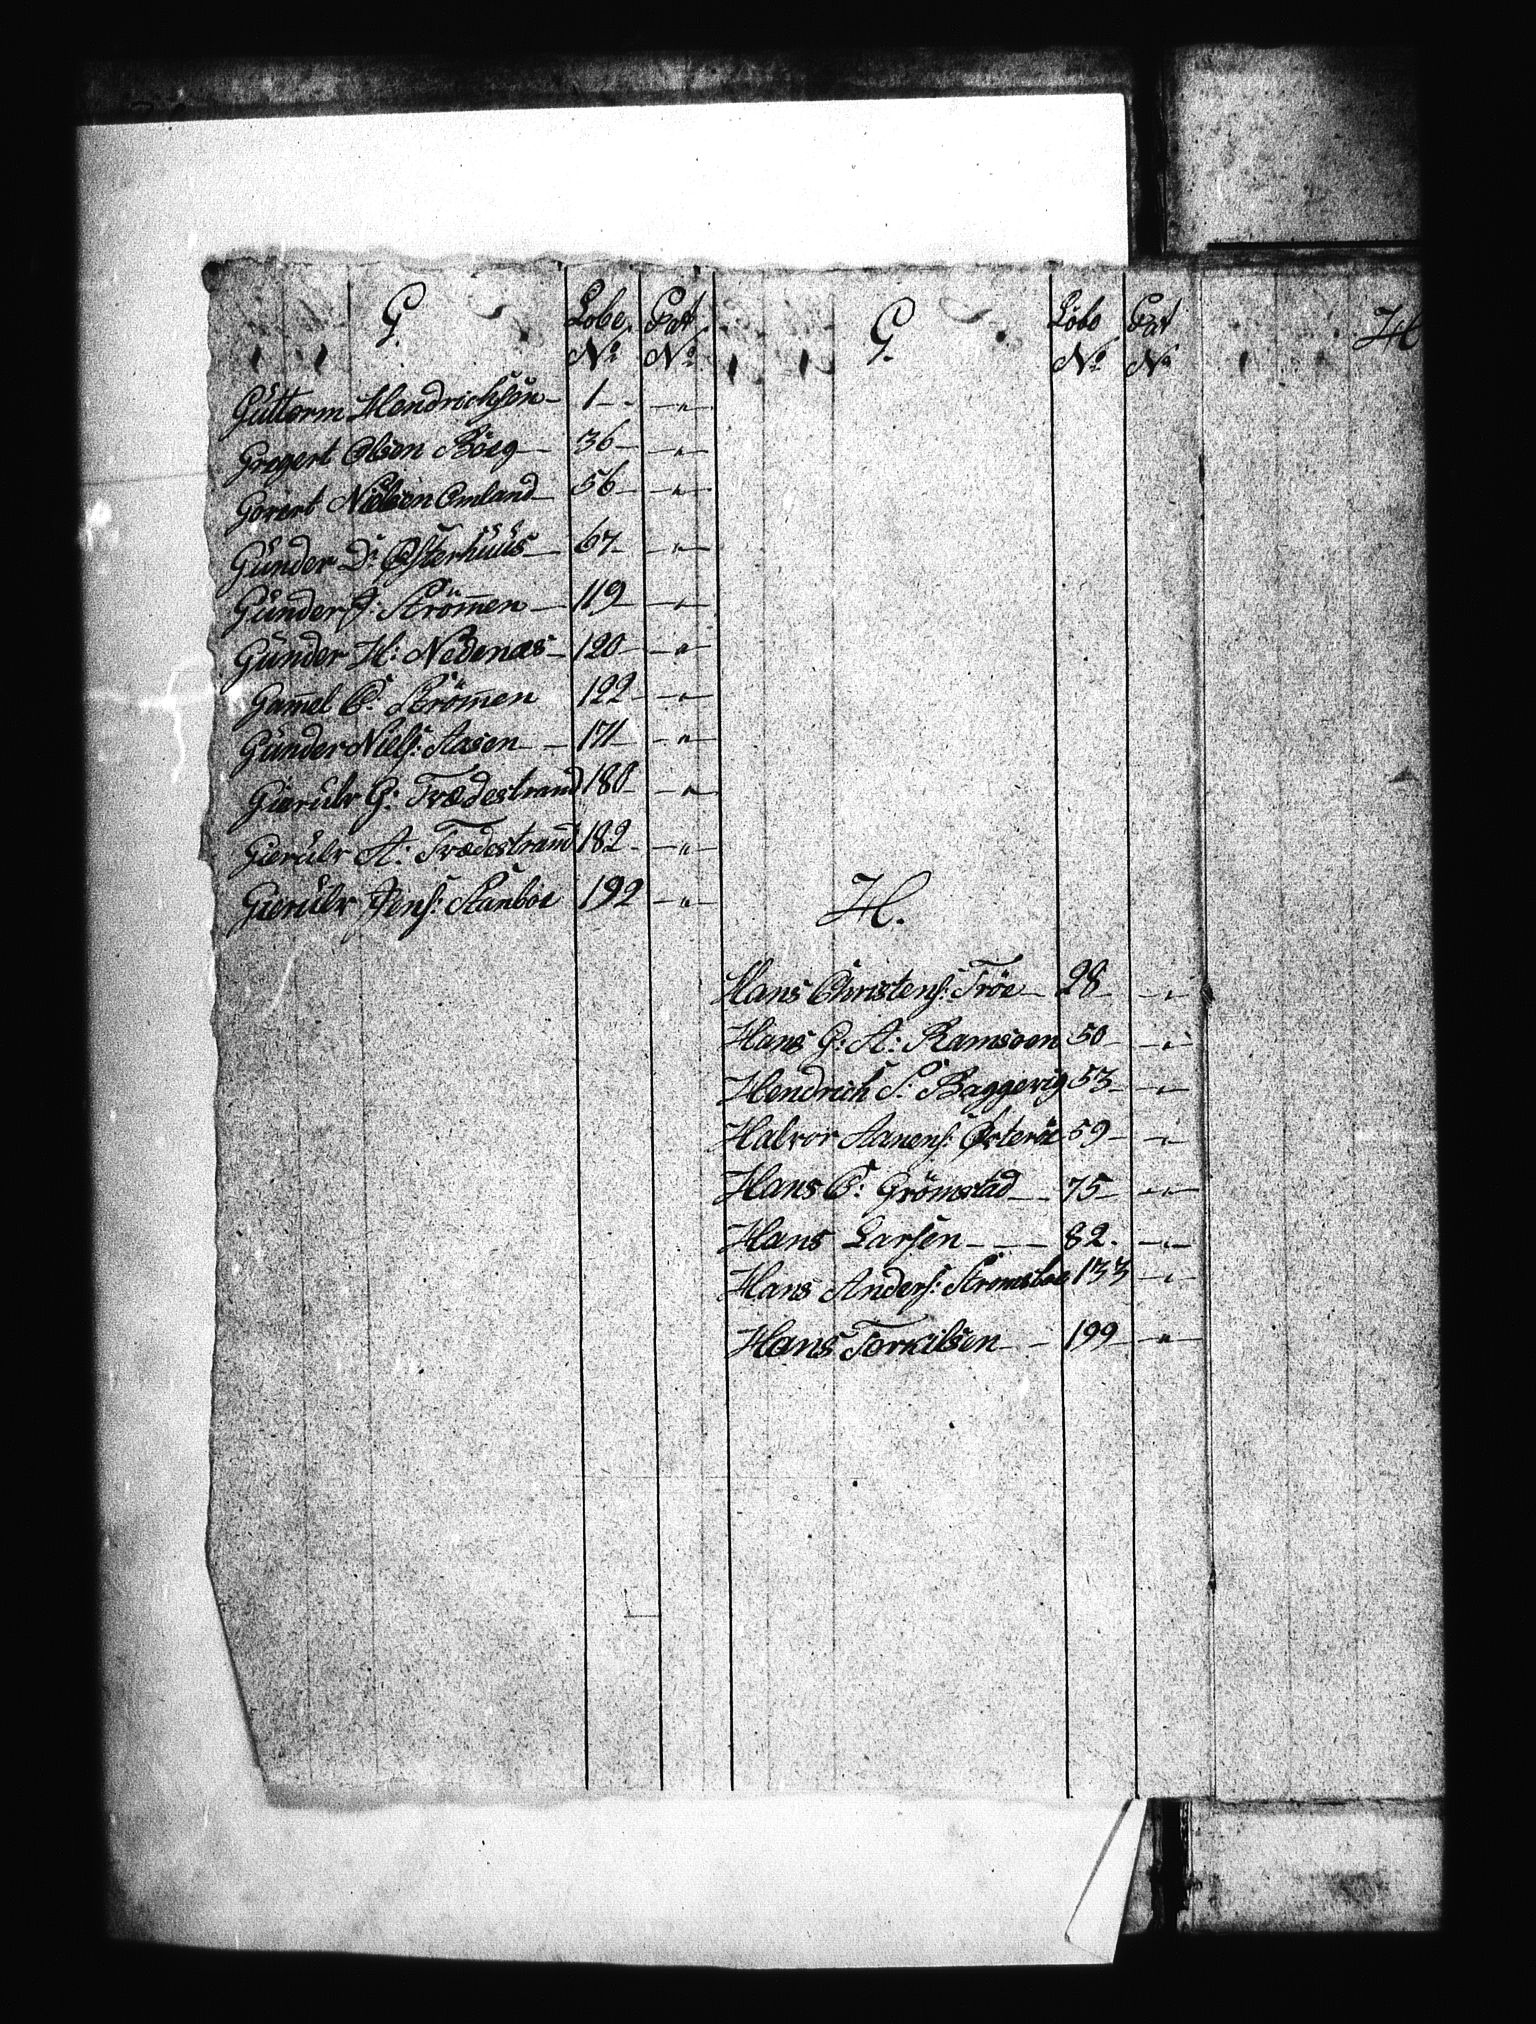 G.
Løbe Pat
No No
Guttorm Hendrichsøn 1 "
Gregert Olsen Böeg 36 "
Görert Nielsen Omland 56 "
Gunder D: Østerhuus 67 "
Gunder J: Strömen 119 "
Gunder H: Nedenæs 120 "
Gamel O: Strömen 122 "
Gunder Niels: Aasen 171 "
Gierulv G: Tvædestrand 180 "
Gierulv A: Tvædestrand 182 "
Gierulv Jens: 192 "
G.
Løbe Pat
No No
H.
Hans Christens: Tröe 28 "
Hans G: A: 50 "
Hendrich S: Baggerig 53 "
Halvor Aanens: Østeröe 59 "
Hans C: Grömstad 75 "
Hans Larsen 82 "
Hans Anders: Stromsboe 133 "
Hans Torkilsen 199 "
H